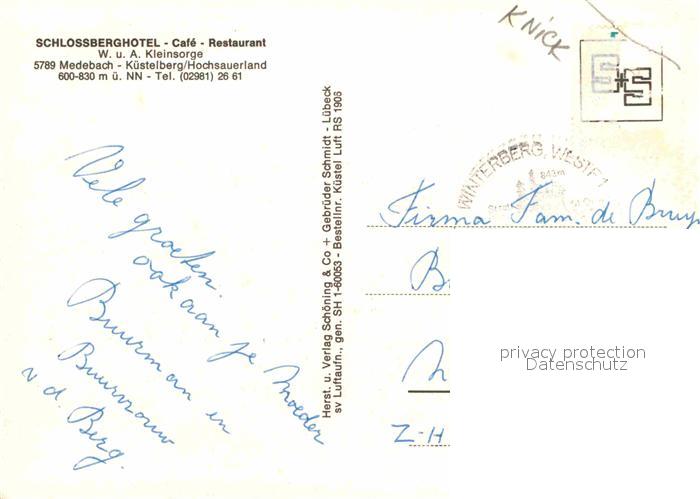 KNiCK
SCHLOSSBERGHOTEL - Café - Restaurant
W. u. A. Kleinsorge
5789 Medebach - Küstelberg/Hochsauerland
600-830 m ü. NN - Tel. (02981) 26 61
Herst. u. Verlag Schöning & Co + Gebrüder Schmidt - Lübeck
sv Luftaufn., gen. SH 1-60053 - Bestellnr. Küstel Luft RS 1906
WINTERBERG, WESTF 1
843m
Vele groeten.
ook aan je Moeder
Buurman en
Buurvrouw
v d. Berg.
Firma Fam. de Bruyn
B
Z-H
privacy protection
Datenschutz